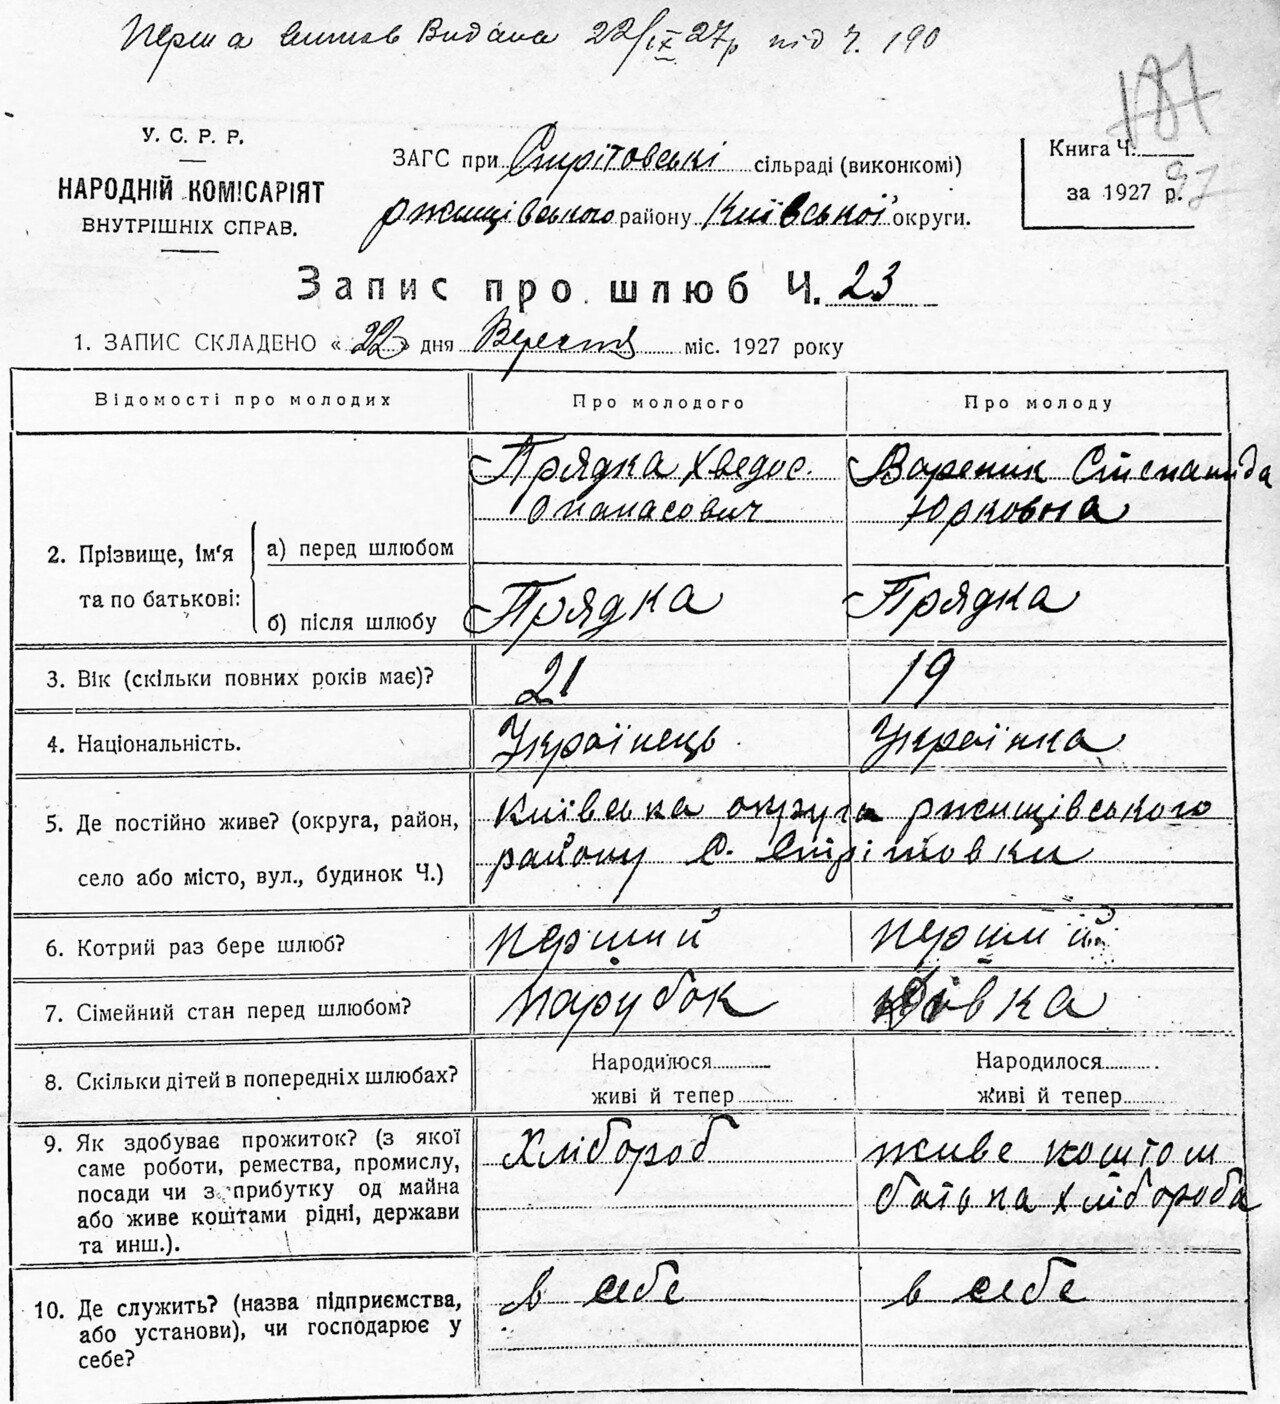 Перша витяв Видана 22/IX 27р під ч. 190
187
97
У. С. Р. Р.
НАРОДНІЙ КОМІСАРІЯТ
ВНУТРІШНІХ СПРАВ.
ЗАГС при Стрітовські сільраді (виконкомі)
ржищівського району Київської округи.
Книга Ч.
за 1927 р.
Запис про шлюб Ч. 23
1. ЗАПИС СКЛАДЕНО «22» дня Вересня міс. 1927 року
Відомості про молодих Про молодого Про молоду
2. Прізвище, ім'я та по батькові:
а) перед шлюбом
Прядка Хведос.
Опанасович
Вареник Степанида
Юрковна
б) після шлюбу Прядка Прядка
3. Вік (скільки повних років має)? 21 19
4. Національність. Українець Українка
5. Де постійно живе? (округа, район,
село або місто, вул., будинок Ч.)
Київська округа ржищівського
району с. Стрітовки
6. Котрий раз бере шлюб? перший перший
7. Сімейний стан перед шлюбом? парубок дівка
8. Скільки дітей в попередніх шлюбах?
Народилося
живі й тепер
Народилося
живі й тепер
9. Як здобуває прожиток? (з якої
саме роботи, ремества, промислу,
посади чи з прибутку од майна
або живе коштами рідні, держави
та инш.).
Хлібороб
живе коштом
батька хлібороба
10. Де служить? (назва підприємства,
або установи), чи господарює у
себе?
в себе
в себе